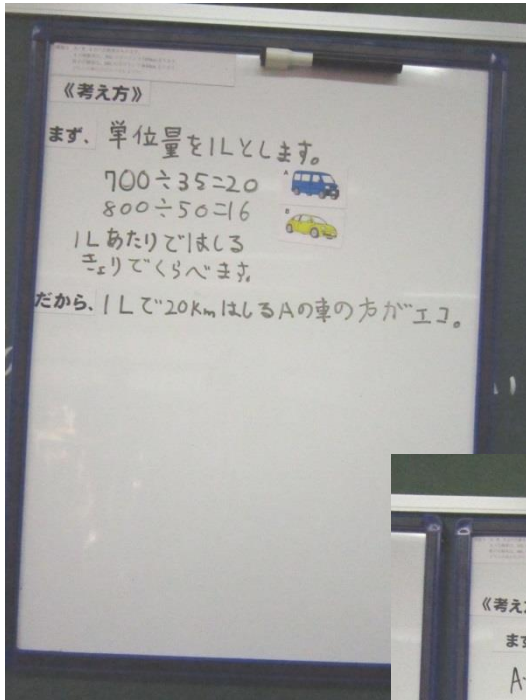 《考え方》
まず、単位量を1Lとします。
700÷35=20
A
800÷50=16
B
1Lあたりではしる
きょりでくらべます。
だから、1Lで20kmはしるAの車の方がエコ。
《考え
まず
A